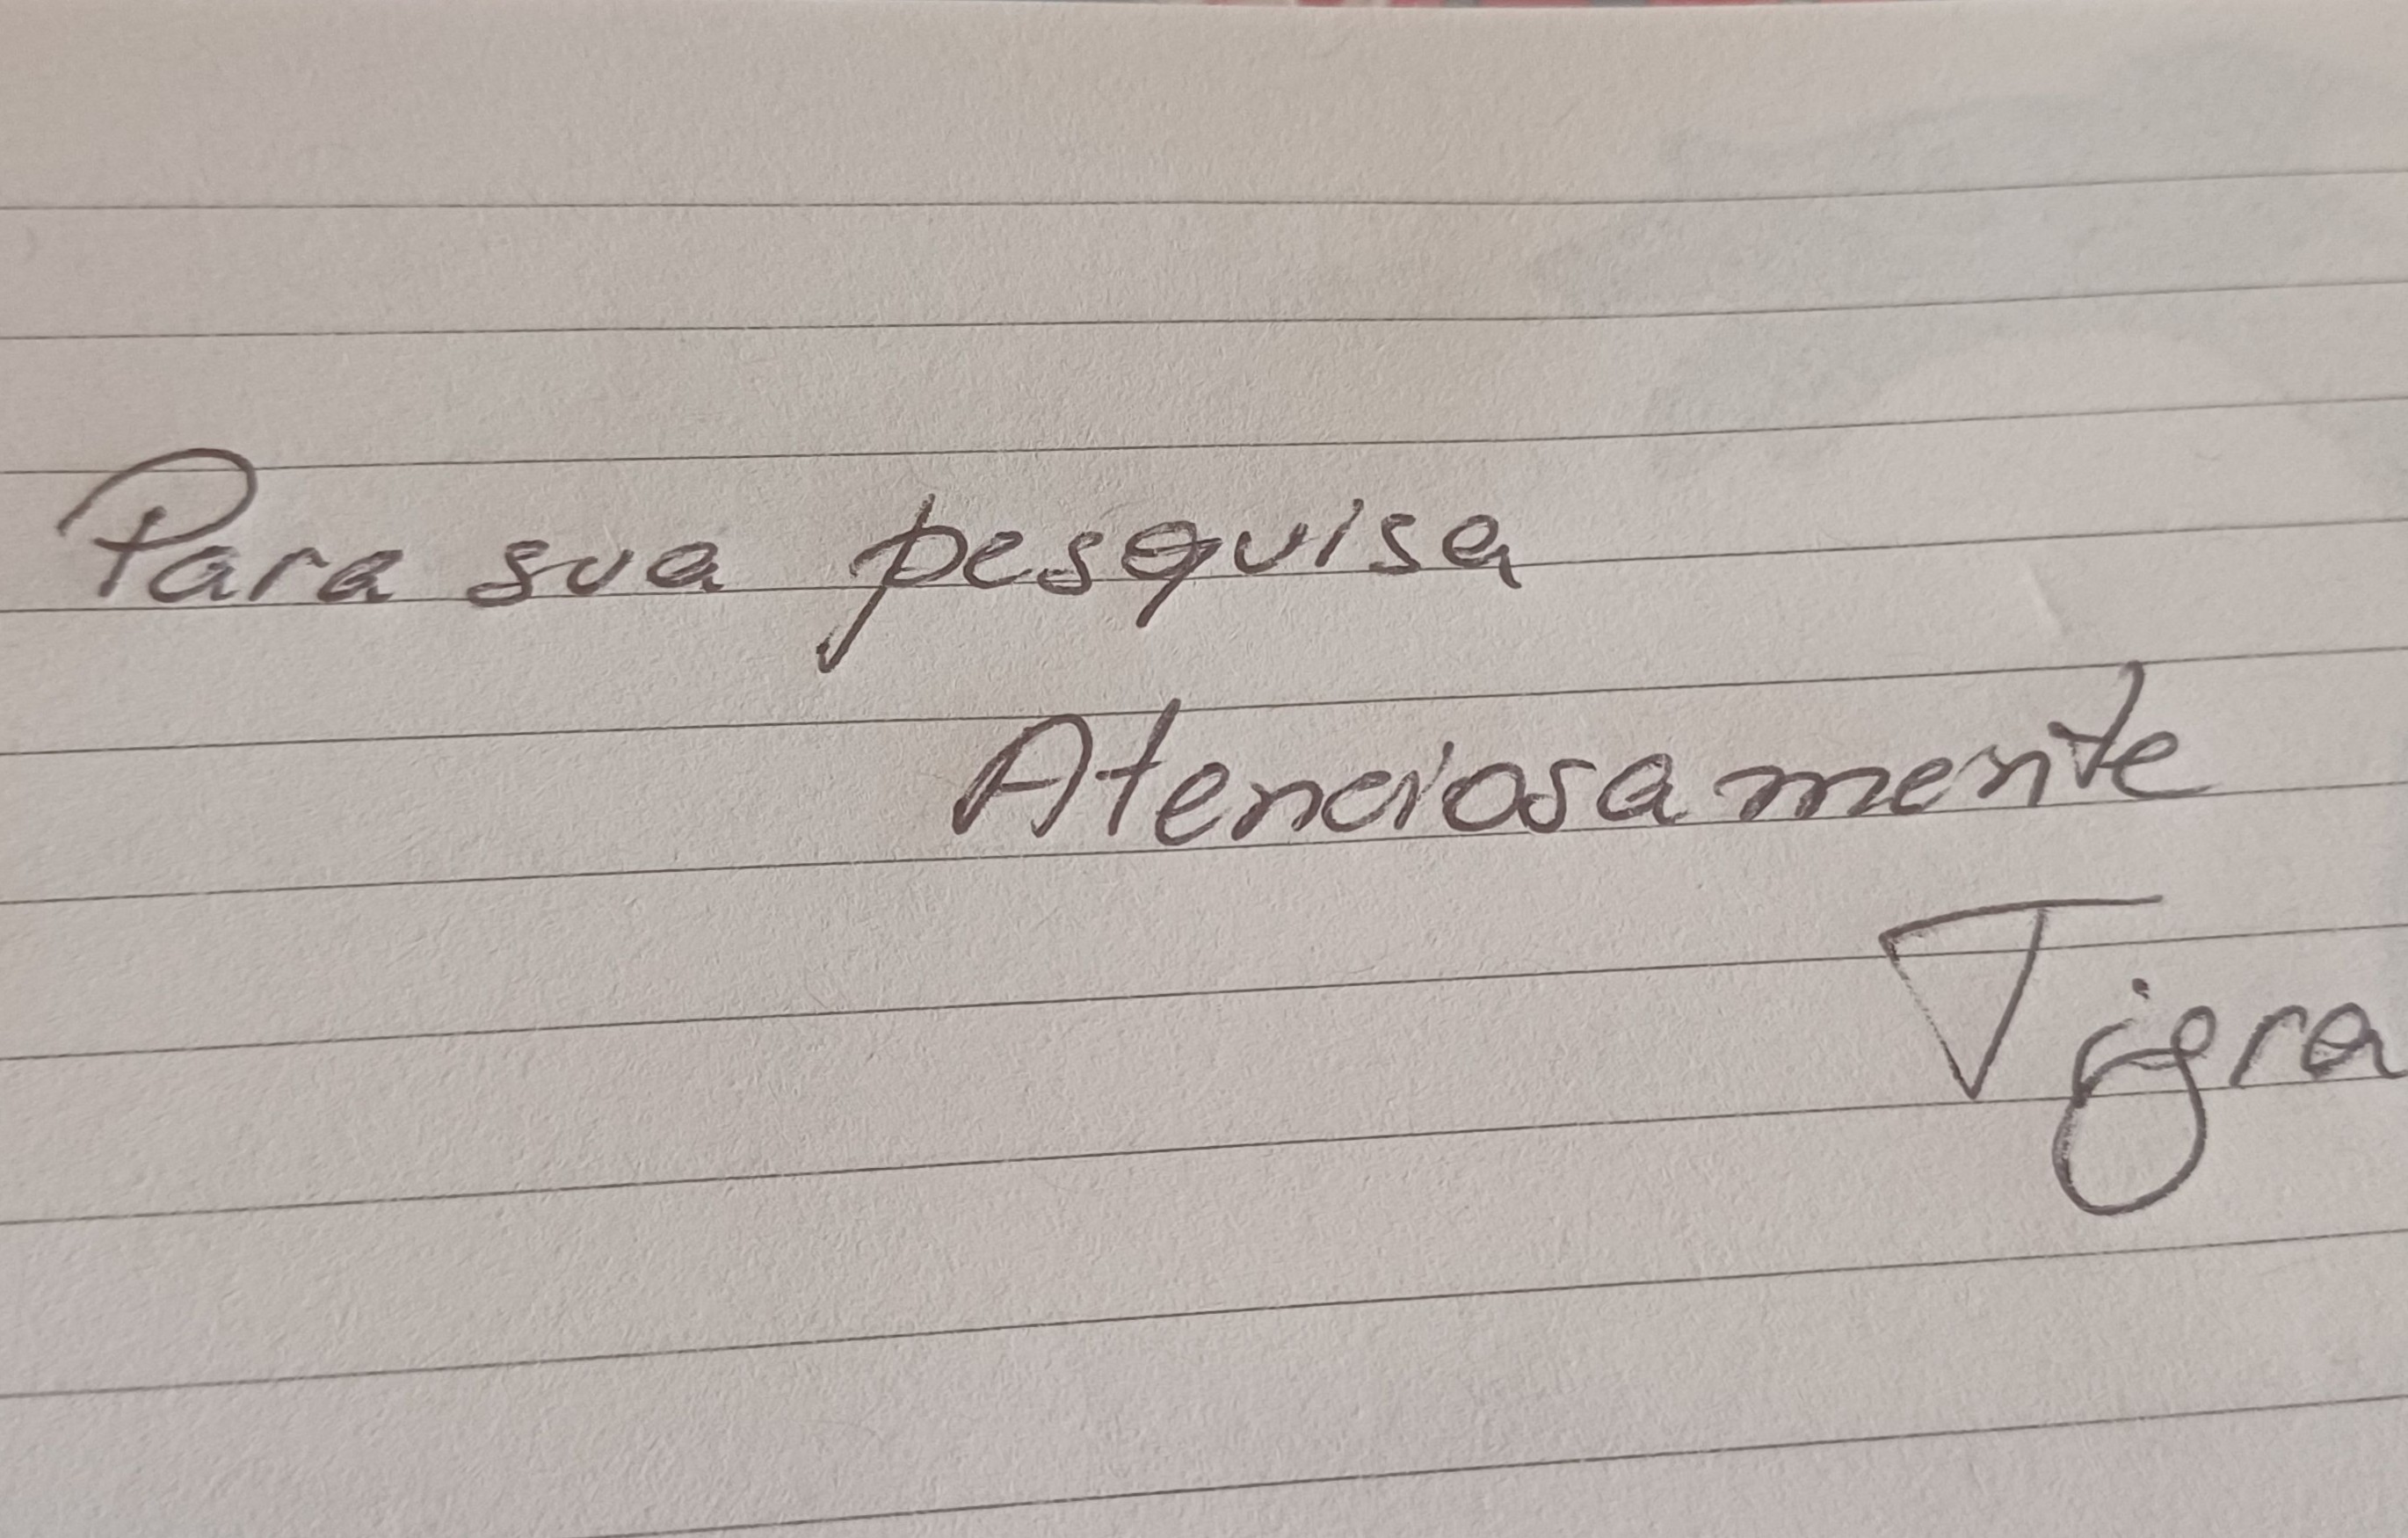 Para sua pesquisa
Atenciosamente
Tigra